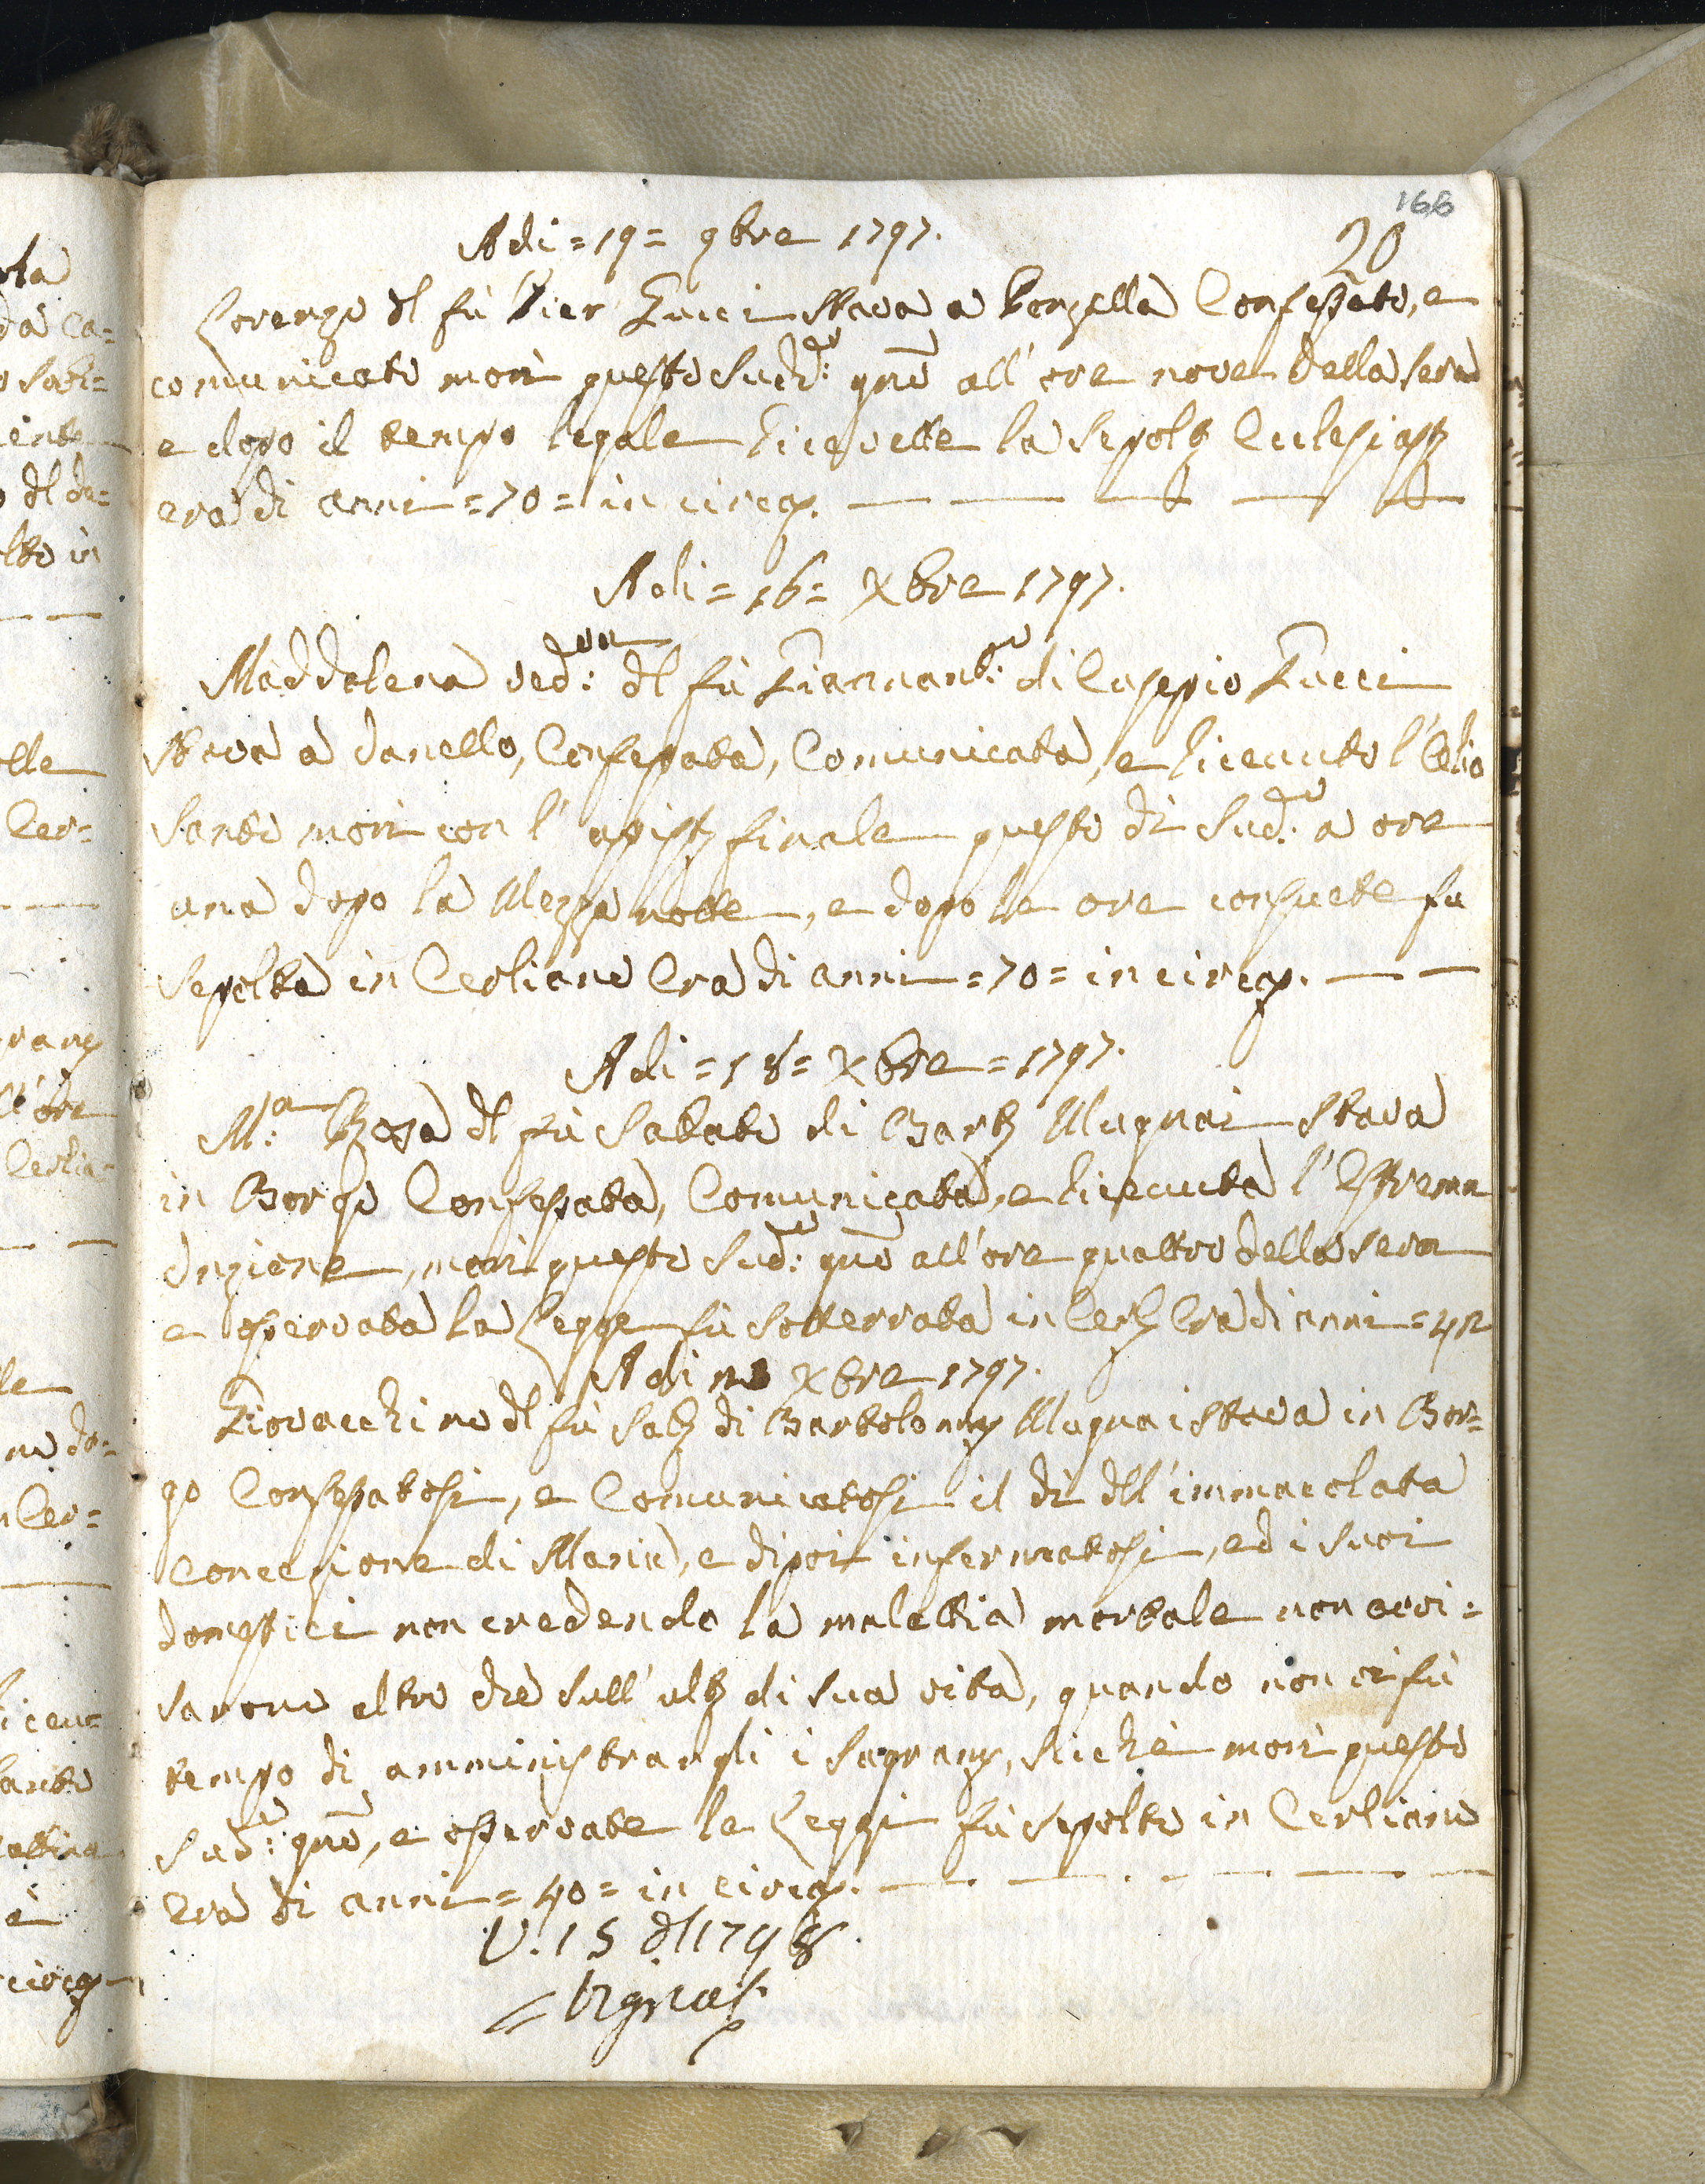 166
20
Adi = 19 = 9bre 1797.
Lorenzo dl fù Pier Gucci stava a Conzella Confessato, e
comunicato morì questo sudd:to gno all'ore nove della sera
e dopo il tempo legale ricevette la sepolt Ecclesiast
era di anni = 70 = in circa.
Adi = 16 = Xbre 1797.
Maddalena ved:va dl fù Giannant:o di Cuseppio Gucci
stava a Danello, Confessata, Comunicata, e riceuuto l'Olio
santo morì con l'assist finale questo dì sud:to a ore
una dopo la Mezza notte, e dopo le ore consuete fu
sepolta in Cerliano Era di anni = 70 = in circa.
Adi = 18 = Xbre = 1797.
M:a Rosa dl fù Sabato di Bart Mugnai stava
in Borgo Confessata, Comunicata, e riceuuta l'Estrema
Unzione, morì questo sud:to gno all'ore quattro della sera
e osservata la Legge fù sotterrata in Cerl Era di anni = 42
Adi Xbre 1797.
Giovacchino dl fù Sab di Bartolomm Mugnai stava in Bor=
go Confessatosi, e Comunicatosi il dì dll'immacolata
concezione di Maria, e dipoi infermatosi, ed i suoi
domestici non credendo la malattia mortale non avvi=
sarono altro che sull'ult di sua vita, quando non ci fù
tempo di amministrargli i sagram, sicche morì questo
sud:to gno, e osservate le Leggi fù sepolto in Cerliano
Era di anni = 40 = in circa.
V. 15 dl 1798.